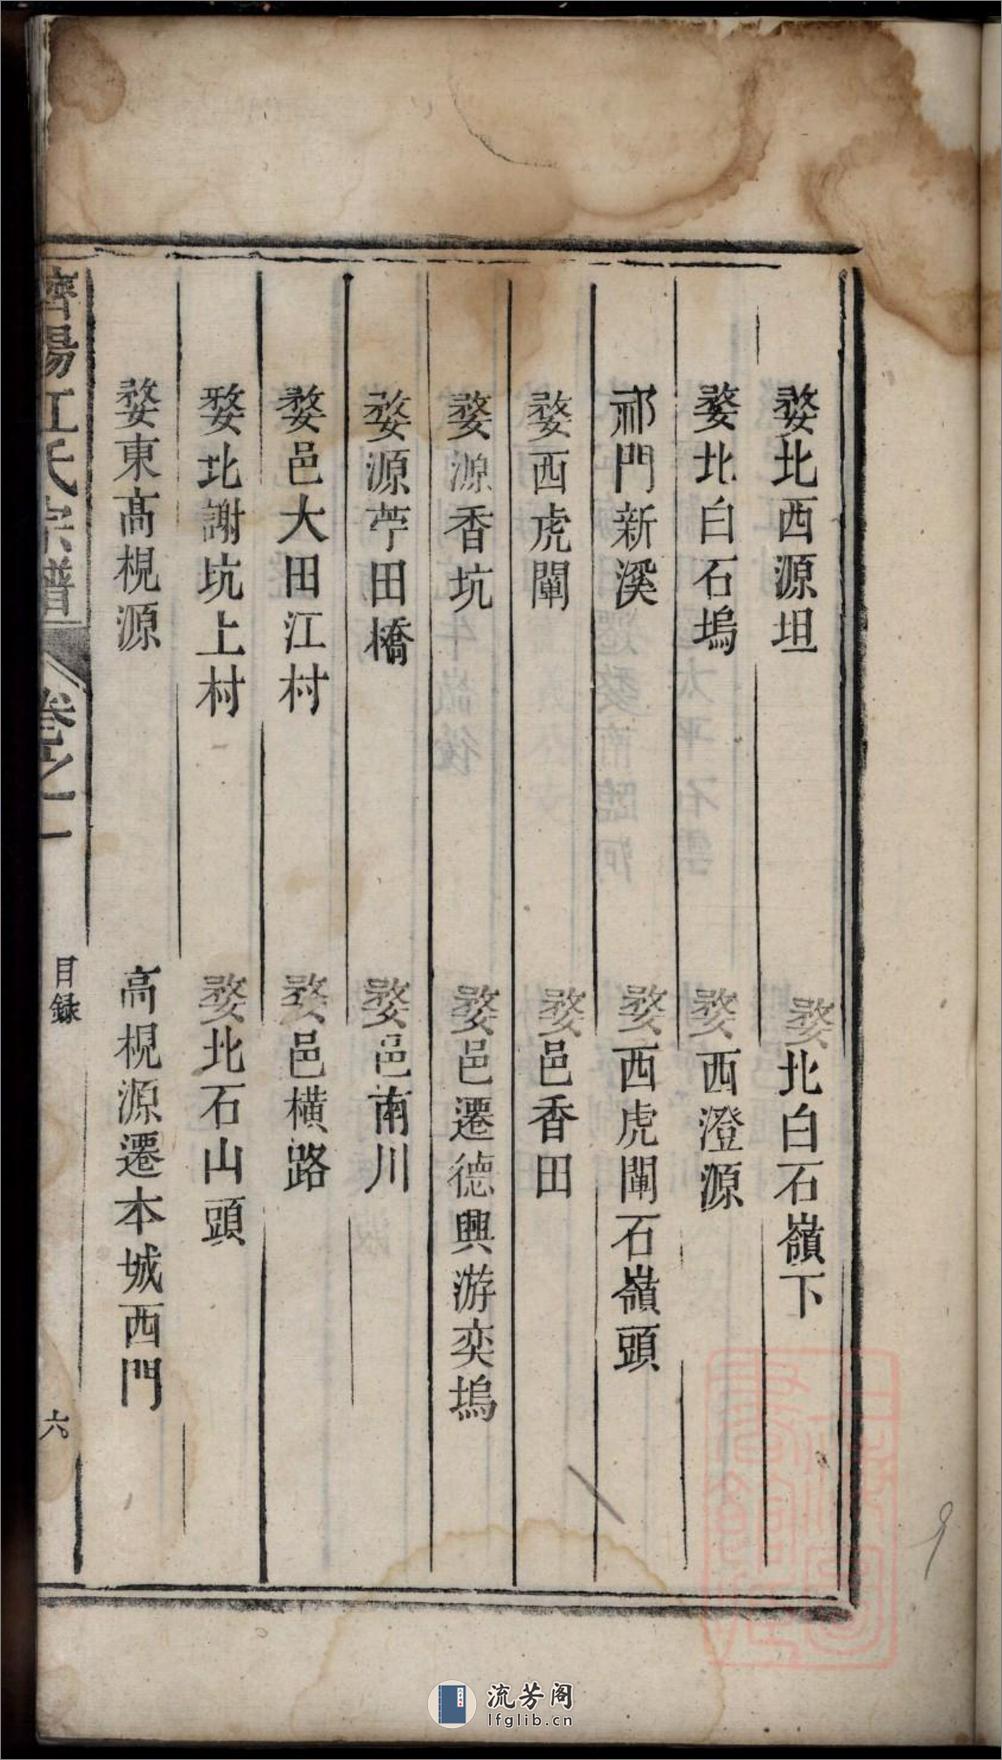 婺北西源坦
婺北白石嶺下
婺北白石塢
婺西澄源
祁門新溪
婺西虎闈石嶺頭
婺西虎闈
婺邑香田
婺源香坑
婺邑遷德興游奕塢
婺源苧田橋
婺邑南川
婺邑大田江村
婺邑橫路
婺北謝坑上村
婺北石山頭
婺東高梘源
高梘源遷本城西門
濟陽江氏宗譜
卷之一
目録
六
9
流芳阁
lfglib.cn